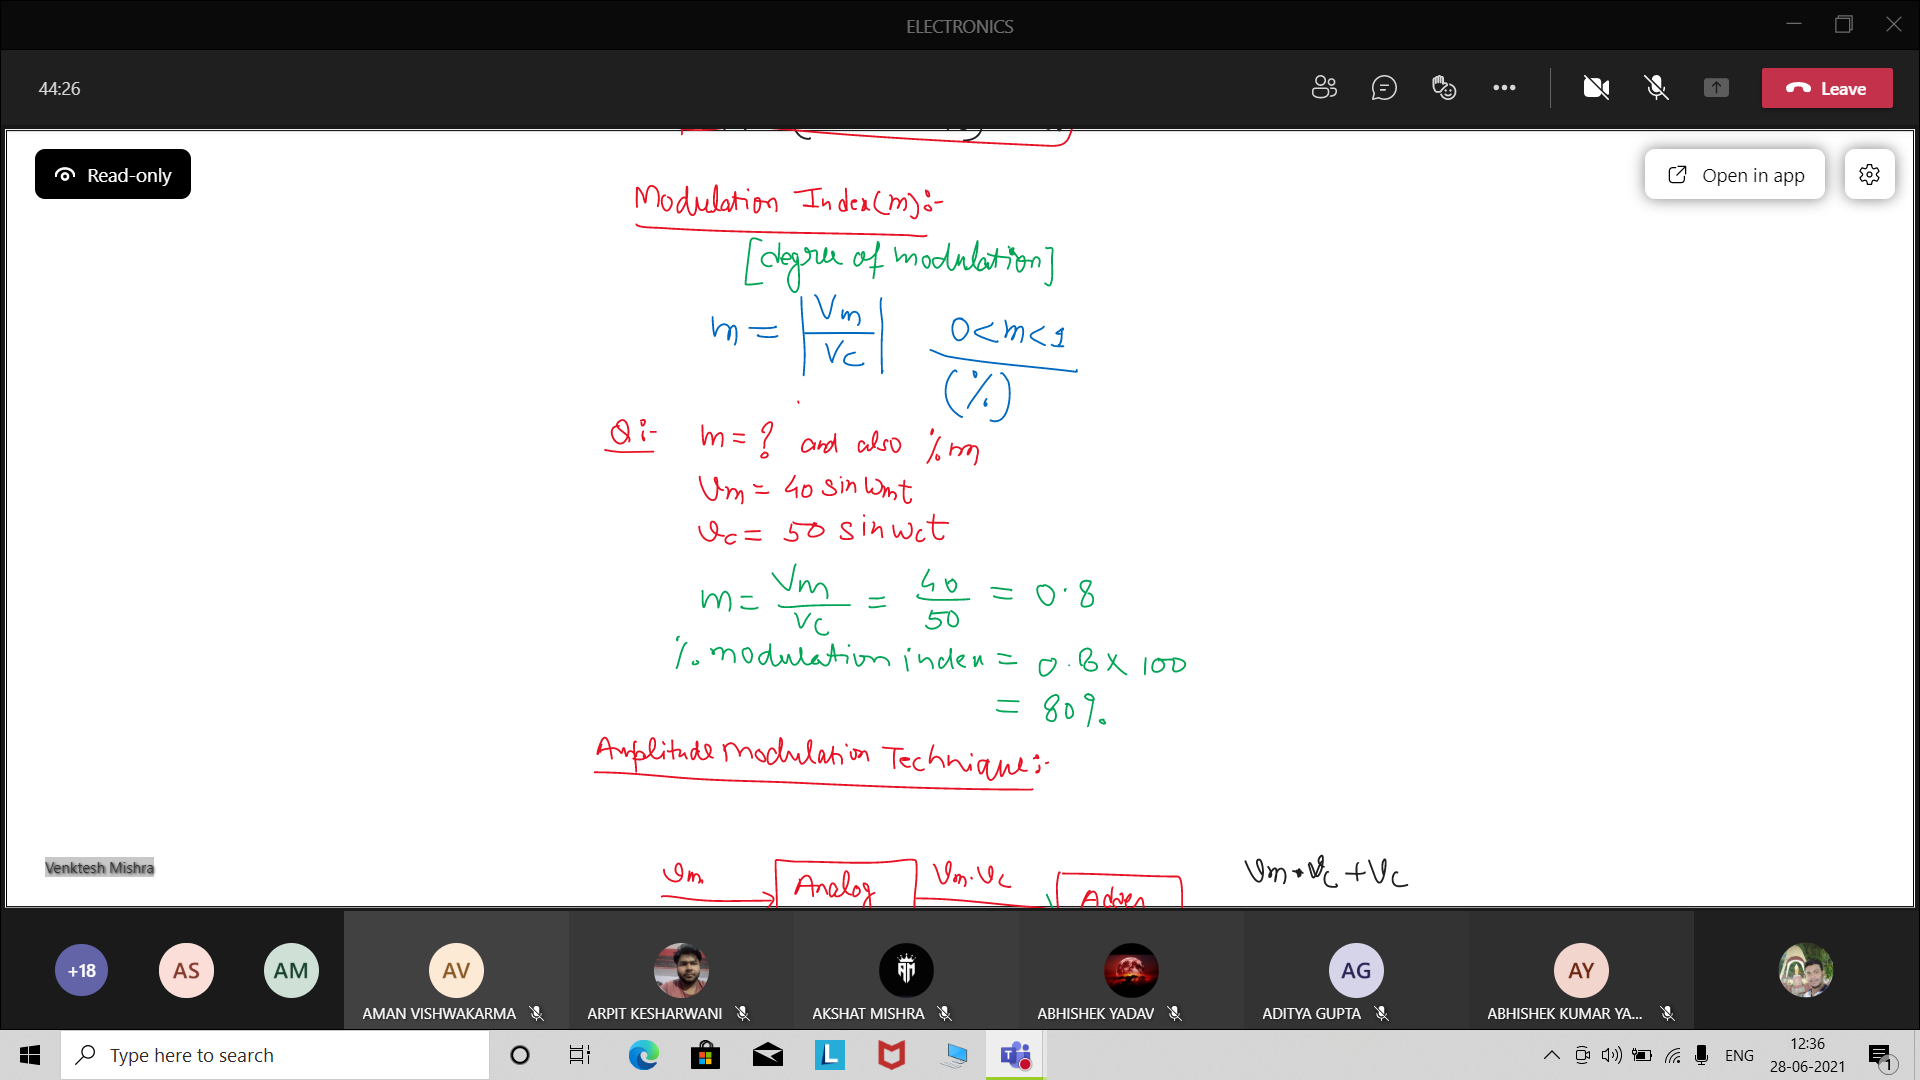 ELECTRONICS
44:26
Leave
Read-only
Open in app
Modulation Index(m):-
[degree of modulation]
m = |Vm/Vc| 0<m<1
(%)
Q:- m = ? and also %m
Vm = 40 sin wmt
Vc = 50 sin wct
m = Vm/Vc = 40/50 = 0.8
% modulation index = 0.8 x 100
= 80%
Amplitude Modulation Technique:-
Venktesh Mishra
Vm Analog Vm.Vc Adder Vm.Vc + Vc
+18 AS AM AV AG AY
AMAN VISHWAKARMA ARPIT KESHARWANI AKSHAT MISHRA ABHISHEK YADAV ADITYA GUPTA ABHISHEK KUMAR YA...
Type here to search
L
ENG
12:36
28-06-2021
1